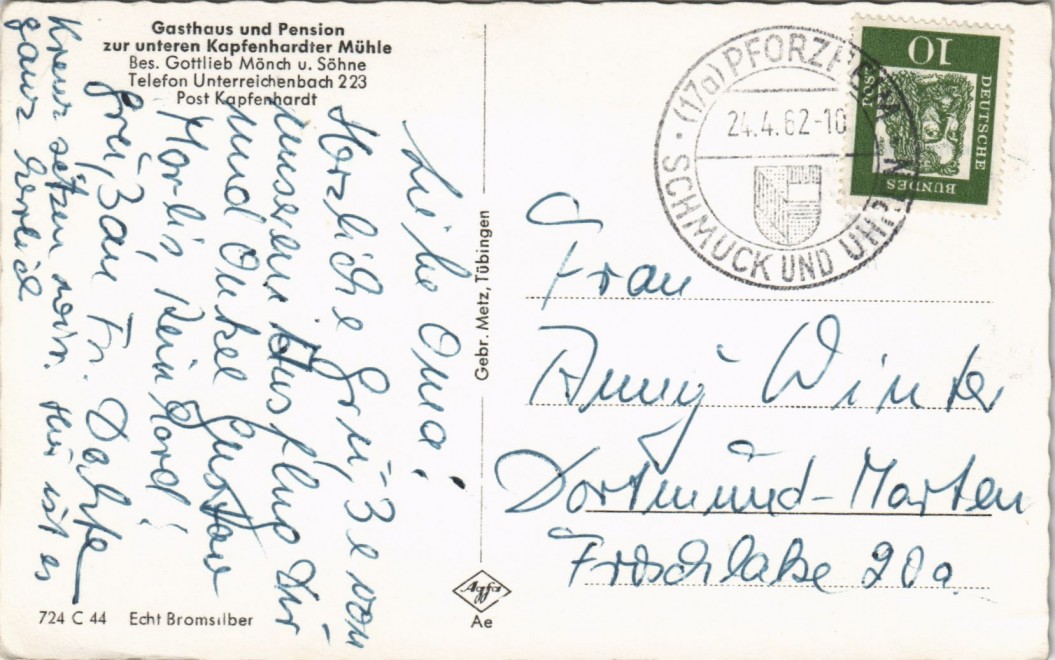 Gasthaus und Pension
zur unteren Kapfenhardter Mühle
Bes. Gottlieb Mönch u. Söhne
Telefon Unterreichenbach 223
Post Kapfenhardt
Liebe Oma!
Herzliche Grüße von
unserem Ausflug Ihr
und Onkel Gustav
Marlis, Reinhard!
Grüßen Fr.
setzen
ganz herrlich
hier ist es
Gebr. Metz, Tübingen
Agfa
Ae
724 C 44 Echt Bromsilber
(17a) PFORZHEIM
24.4.62-10
SCHMUCK UND UHREN
10
DEUTSCHE
BUNDES
POST
Frau
Anny Winter
Dortmund-Marten
20a